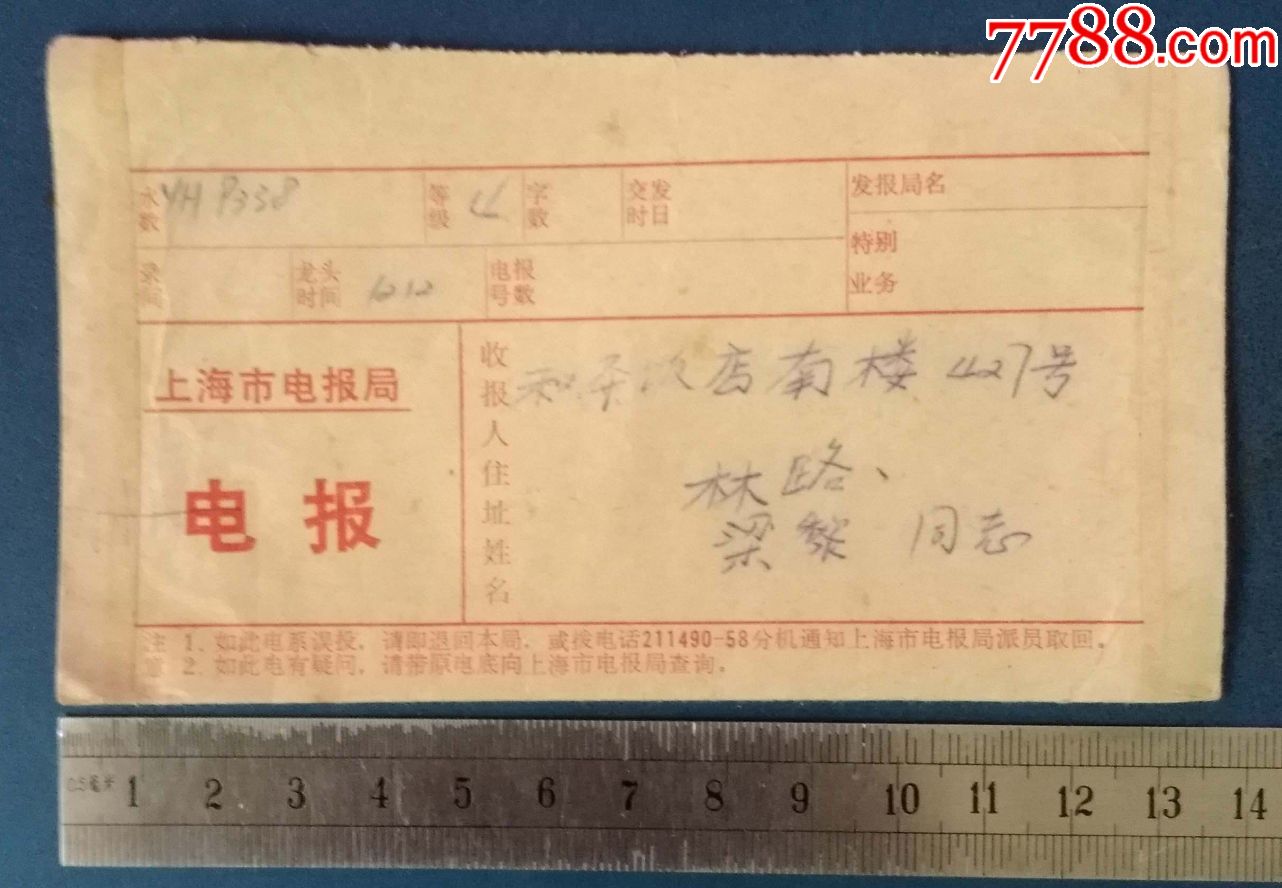 7788.com
水数 YH 8338 等级 4 字数 交发时日 发报局名
特别业务
录间 龙头时间 1212 电报号数
上海市电报局
电报
收报人住址姓名
和平饭店南楼427号
林路、
梁黎 同志
注 1. 如此电系误投，请即退回本局，或拨电话211490-58分机通知上海市电报局派员取回。
意 2. 如此电有疑问，请带原电底向上海市电报局查询。
0.5毫米 1 2 3 4 5 6 7 8 9 10 11 12 13 14